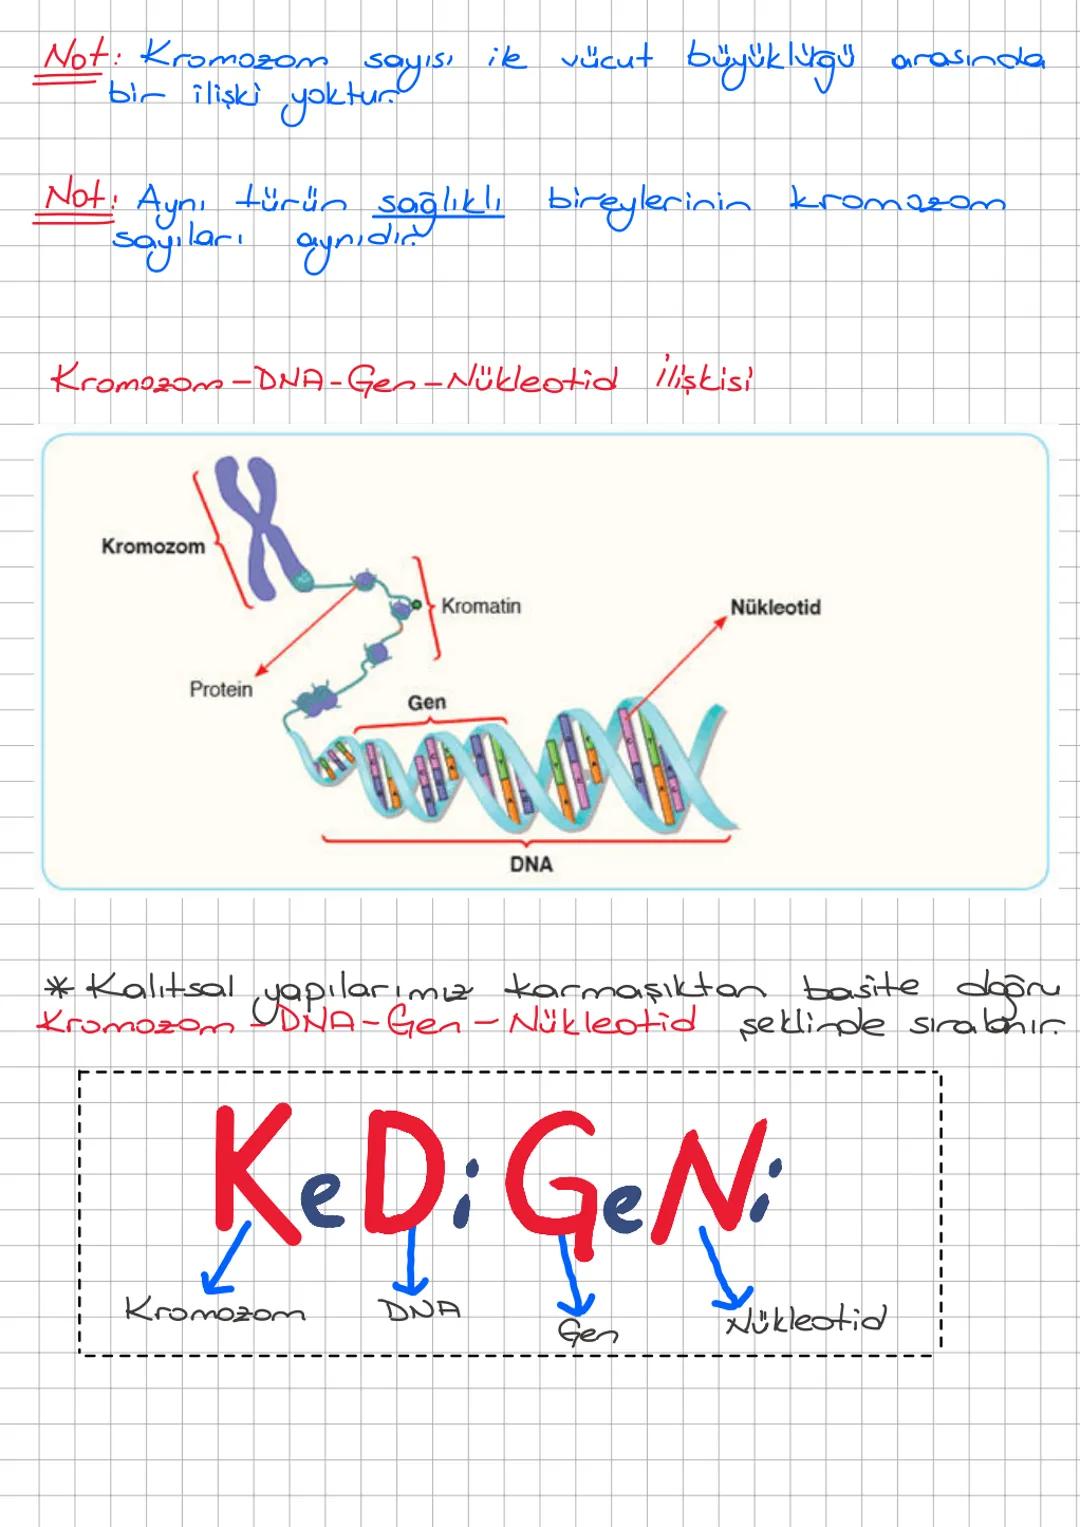 Not: Kromozom sayısı ile vücut büyüklüğü arasında
bir ilişki yoktur.
Not: Aynı türün sağlıklı bireylerinin kromozom
sayıları aynıdır.
Kromozom-DNA-Gen-Nükleotid İlişkisi
Kromozom
Kromatin
Nükleotid
Protein
Gen
DNA
* Kalıtsal yapılarımız karmaşıktan basite doğru
Kromozom-DNA-Gen-Nükleotid şeklinde sıralanır.
KeDi GeNi
Kromozom DNA Gen Nükleotid